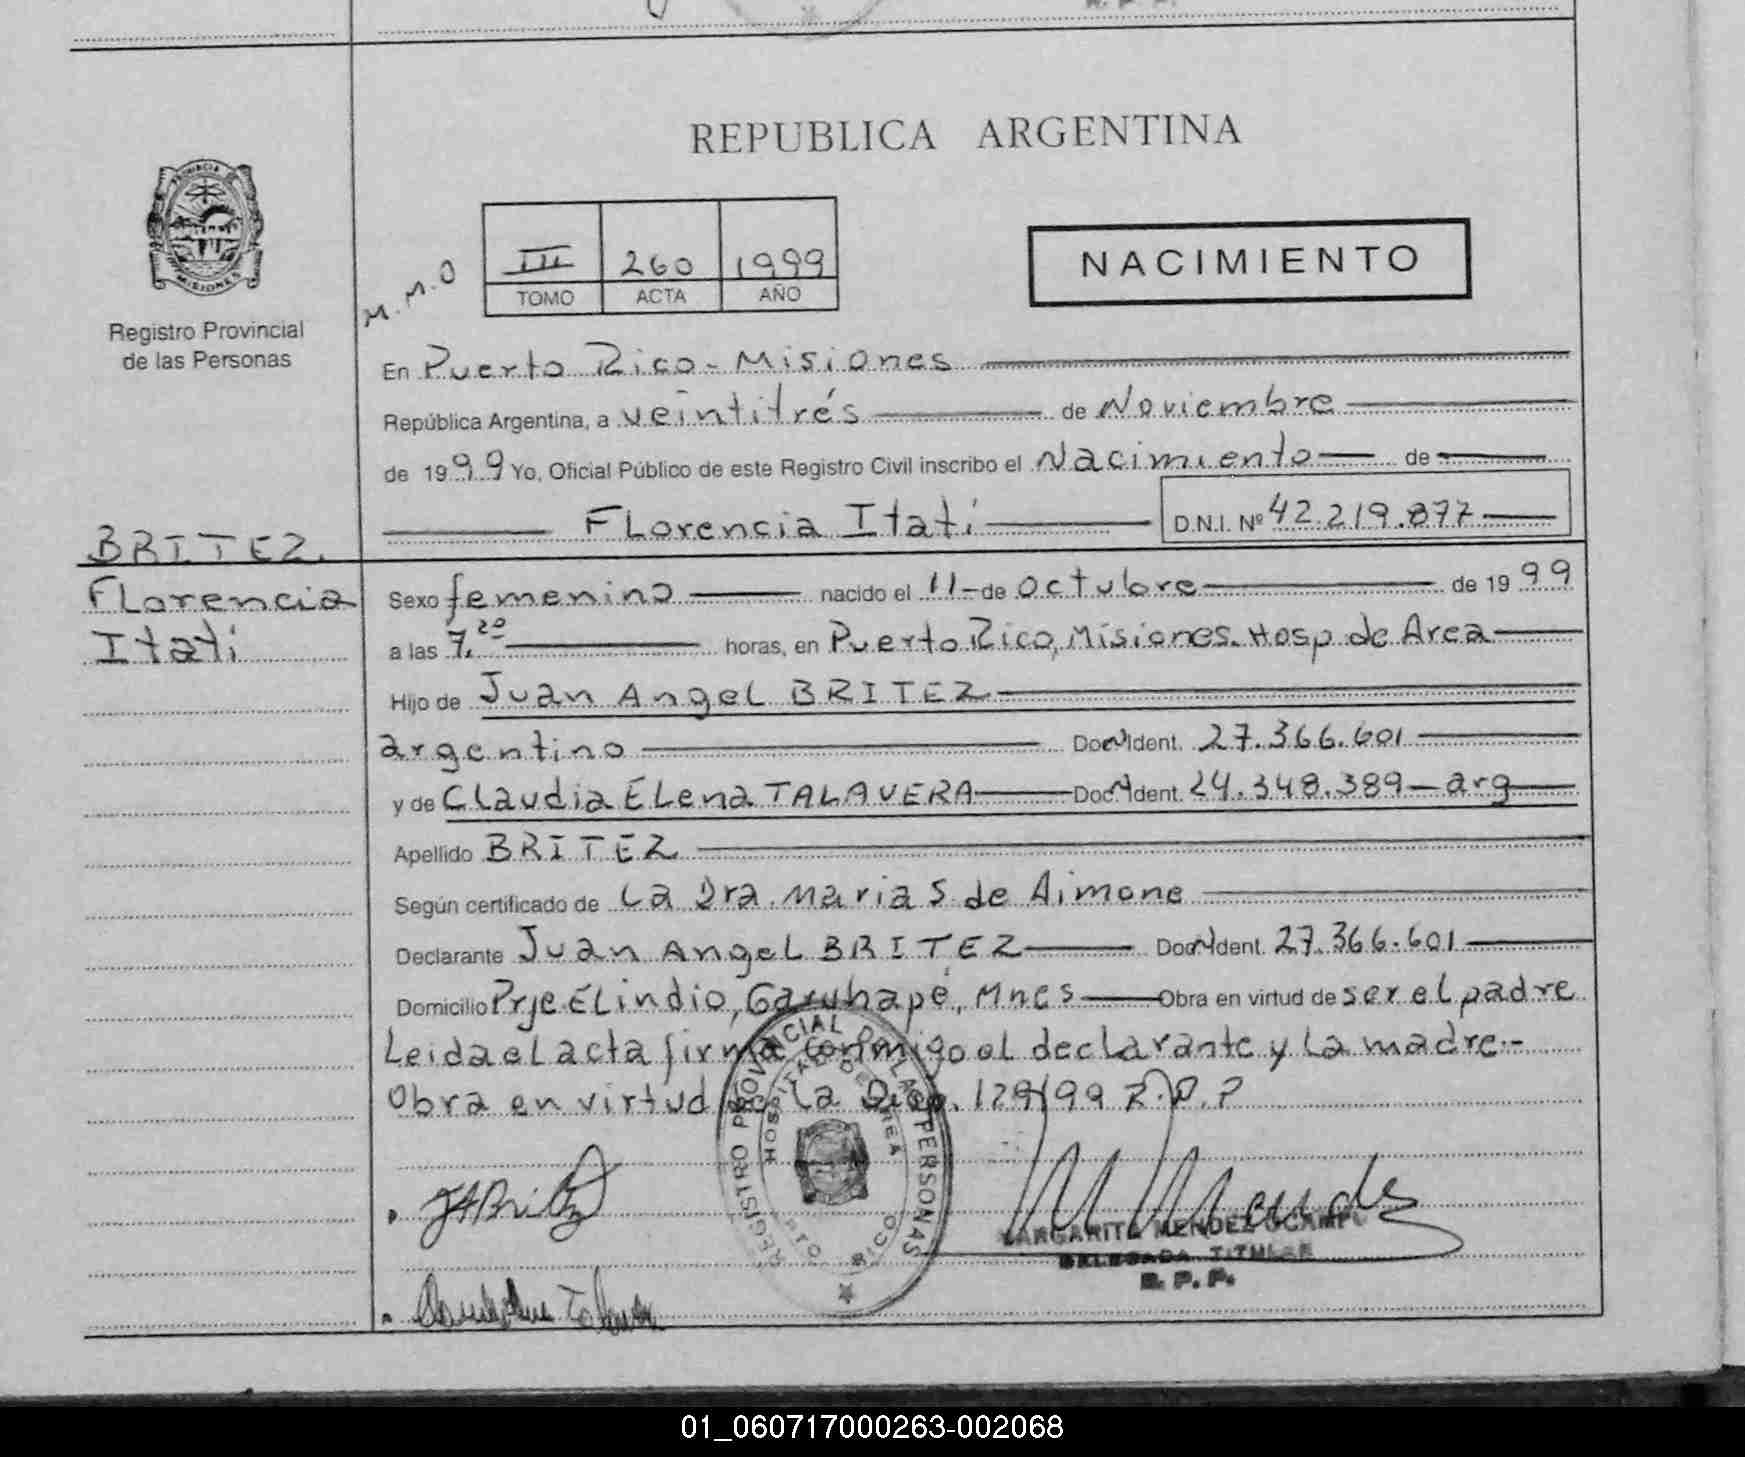 REPUBLICA ARGENTINA
PROVINCIA DE
MISIONES
Registro Provincial
de las Personas
M.M.O
III 260 1999
TOMO ACTA AÑO
NACIMIENTO
En Puerto Rico - Misiones
República Argentina, a veintitrés de Noviembre
de 1999 Yo, Oficial Público de este Registro Civil inscribo el Nacimiento de
Florencia Itatí D.N.I. Nº 42.219.877
BRITEZ.
Florencia
Itatí
Sexo femenino nacido el 11 de octubre de 1999
a las 7.20 horas, en Puerto Rico, Misiones. Hosp de Area
Hijo de Juan Angel BRITEZ
argentino Doc. Ident. 27.366.601
y de Claudia Elena TALAVERA Doc. Ident. 24.348.389 - arg
Apellido BRITEZ
Según certificado de La Dra. Maria S de Aimone
Declarante Juan Angel BRITEZ Doc. Ident. 27.366.601
Domicilio Prje El indio, Garuhapé, Mnes Obra en virtud de ser el padre
Leida el acta firma conmigo el declarante y la madre.-
Obra en virtud de la Disp. 129/99 R.P.P
REGISTRO PROVINCIAL DE LAS PERSONAS
HOSPITAL DE AREA
PTO RICO
JABritez
MARGARITA MENDEZ OCAMPO
DELEGADA TITULAR
R. P. P.
01_060717000263-002068